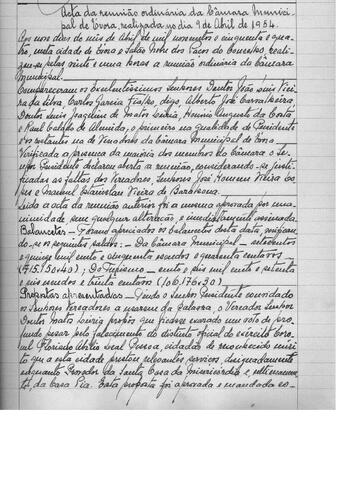 Acta da reunião ordinária da Câmara Munici-
pal de Évora, realizada no dia 9 de Abril de 1954.
Aos nove dias do mês de Abril de mil novecentos e cinquenta e qua-
tro, nesta cidade de Évora e Salão Nobre dos Paços do Concelho, reali-
zou-se pelas vinte e uma horas a reunião ordinária da Câmara
Municipal.
Compareceram os Excelentíssimos Senhores Doutor João Luís Viei-
ra da Silva, Carlos Garcia Fialho, digo, Alberto José Carvalheira
Doutor Luís Joaquim de Matos
e Raul de Almeida, o primeiro na qualidade de Presidente
e os restantes na de Vereadores da Câmara Municipal de Évora.
Verificada a presença da maioria dos membros da Câmara o Se-
nhor Presidente declarou aberta a reunião, considerando-se justi-
ficadas as faltas dos Vereadores, Senhores José Homem Vieira Lo-
pes e Manuel Estanislau Vieira de Barahona.
Lida a acta da reunião anterior foi a mesma aprovada por una-
nimidade sem qualquer alteração, e imediatamente assinada.
Balancetes - Foram apreciados os balancetes desta data, verifican-
do-se os seguintes saldos: - Da Câmara Municipal - setecentos
e quinze mil cento e cinquenta escudos e quarenta centavos
(715.150$40); Do Turismo - cento e seis mil cento e setenta
e seis escudos e trinta centavos (106.176$30)
Propostas apresentadas - Tendo o Senhor Presidente convidado
os Senhores Vereadores a usarem da palavra, o Vereador Senhor
Doutor Matos propôs que fosse exarado um voto de pro-
fundo pesar pelo falecimento do distinto oficial do exército Coro-
nel Floriano Abílio Leal Pessoa, cidadão de reconhecido méri-
to que a esta cidade prestou relevantes serviços, designadamente
enquanto Provedor da Santa Casa da Misericórdia e, ultimamen-
te, da Casa Pia. Esta proposta foi aprovada e mandada co-